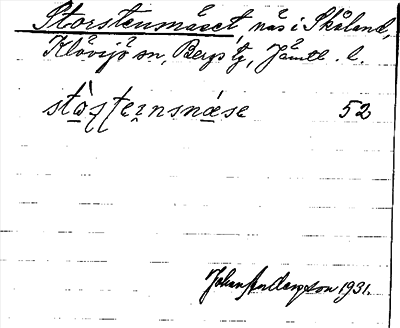 Storstensnäset, näs i Skåland,
Klövsjö sn, Bergs tg, Jämtl. l.
52
Johan Andersson 1931.